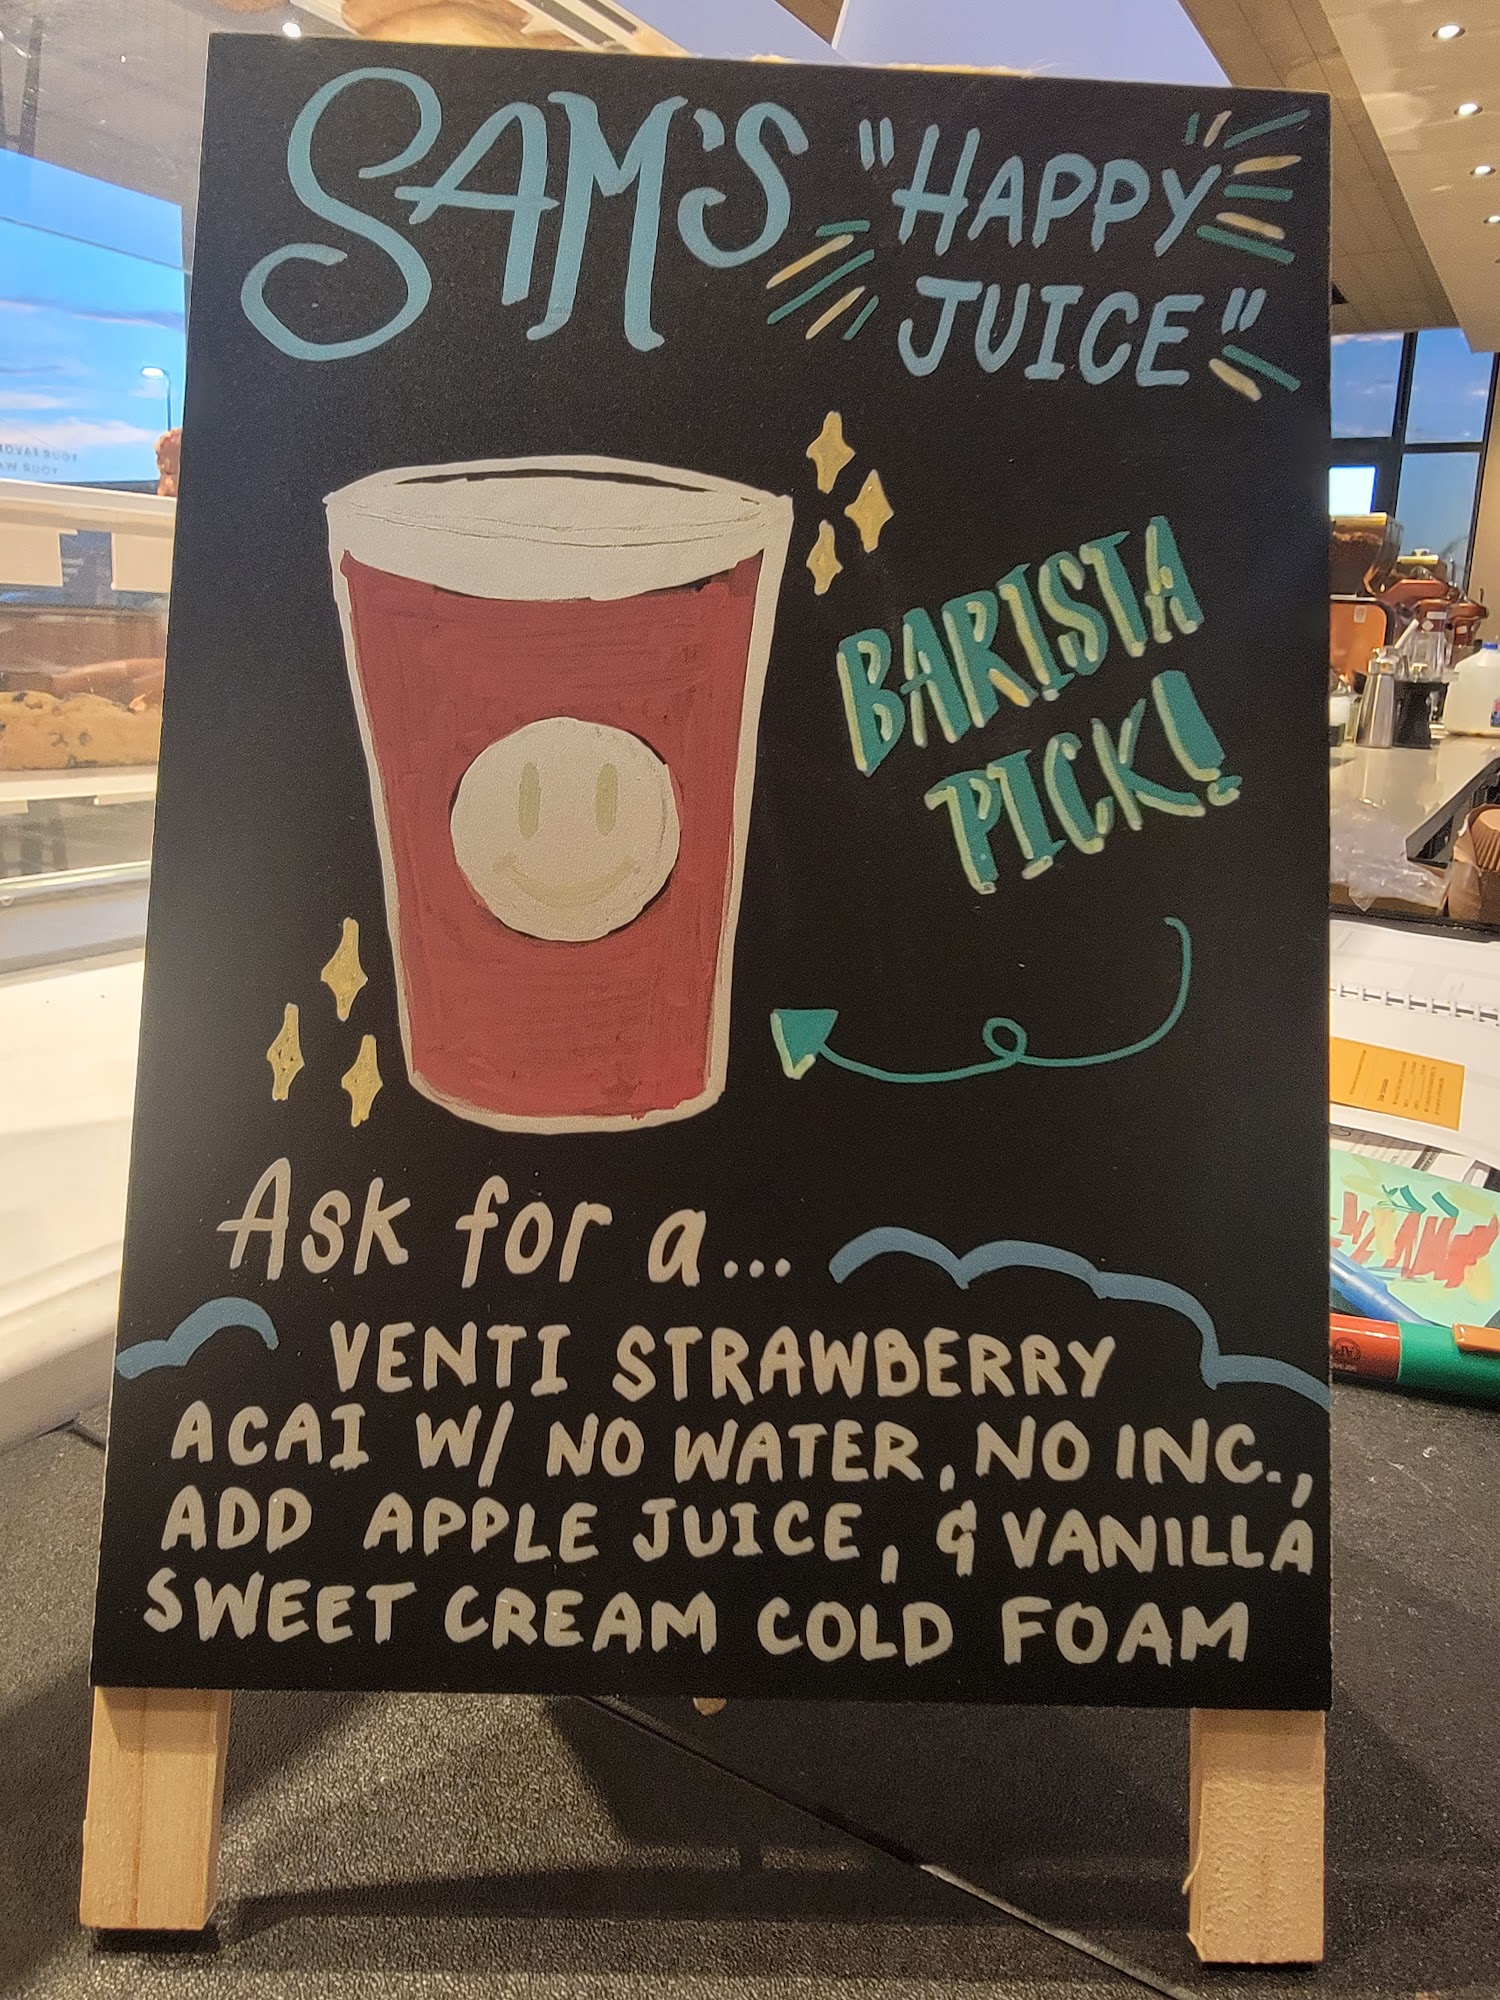 SAM'S "HAPPY
JUICE"
BARISTA
PICK!
Ask for a...
VENTI STRAWBERRY
ACAI W/ NO WATER, NO INC.,
ADD APPLE JUICE, & VANILLA
SWEET CREAM COLD FOAM